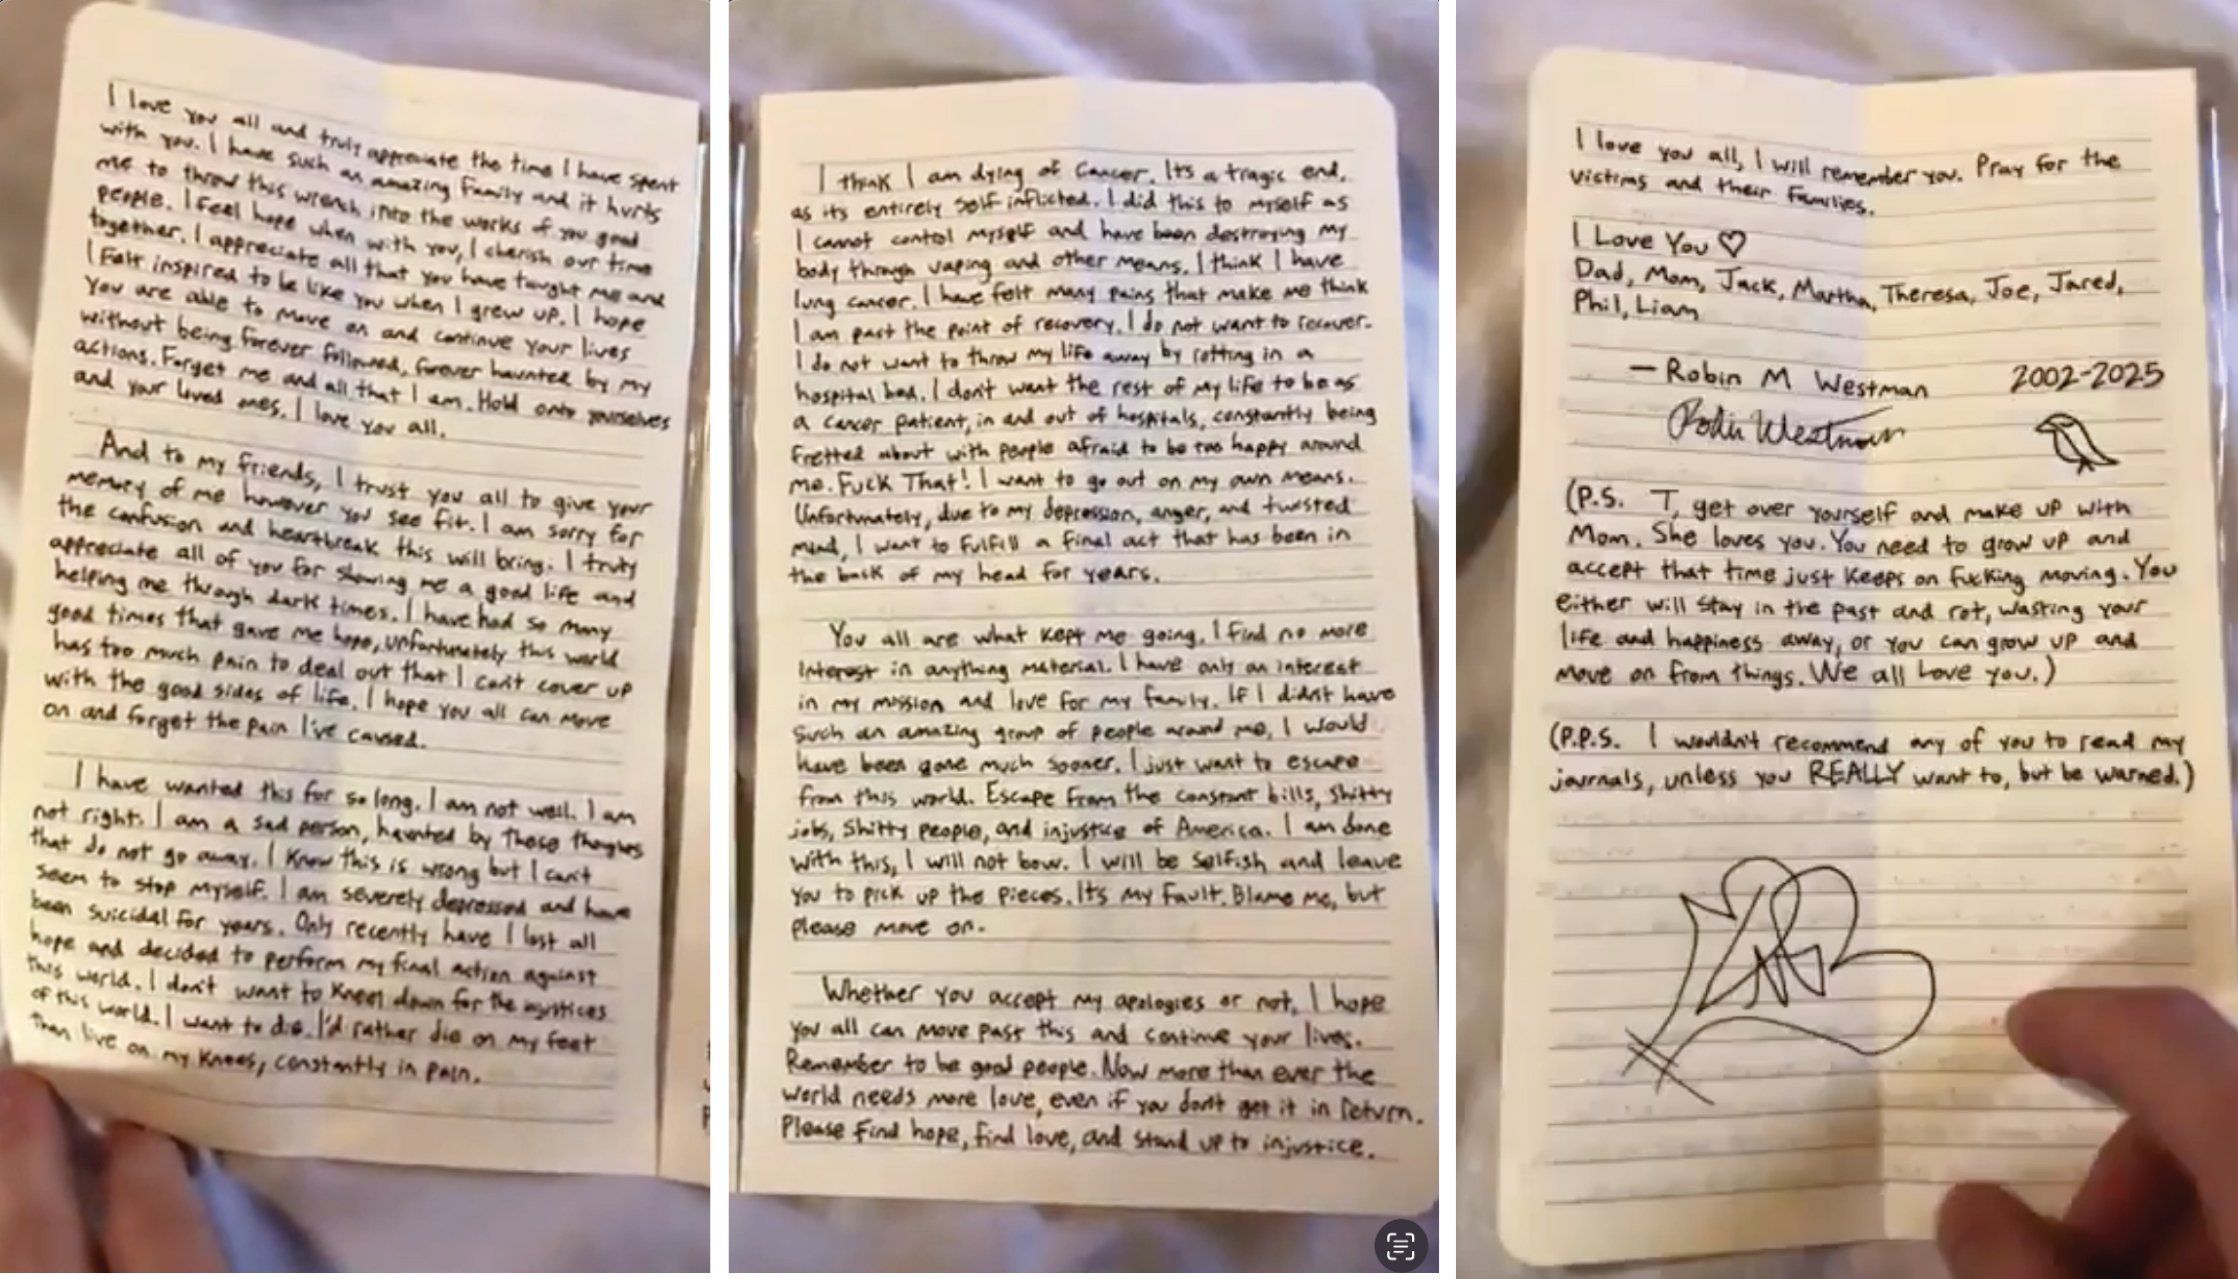 I love you all and truly appreciate the time I have spent
with you. I have such an amazing family and it hurts
me to throw this wrench into the works of you good
people. I feel hope when with you, I cherish our time
together. I appreciate all that you have taught me and
I felt inspired to be like you when I grew up. I hope
you are able to move on and continue your lives
without being forever followed, forever haunted by my
actions. Forget me and all that I am. Hold onto yourselves
and your loved ones. I love you all.
And to my friends, I trust you all to give your
memory of me however you see fit. I am sorry for
the confusion and heartbreak this will bring. I truly
appreciate all of you for showing me a good life and
helping me through dark times. I have had so many
good times that gave me hope, unfortunately this world
has too much pain to deal out that I can't cover up
with the good sides of life. I hope you all can move
on and forget the pain I've caused.
I have wanted this for so long. I am not well. I am
not right. I am a sad person, haunted by these thoughts
that do not go away. I know this is wrong but I can't
seem to stop myself. I am severely depressed and have
been suicidal for years. Only recently have I lost all
hope and decided to perform my final action against
this world. I don't want to kneel down for the injustices
of this world. I want to die. I'd rather die on my feet
than live on my knees, constantly in pain.
I think I am dying of cancer. Its a tragic end,
as its entirely self inflicted. I did this to myself as
I cannot control myself and have been destroying my
body through vaping and other means. I think I have
lung cancer. I have felt many pains that make me think
I am past the point of recovery. I do not want to recover.
I do not want to throw my life away by rotting in a
hospital bed. I don't want the rest of my life to be as
a cancer patient, in and out of hospitals, constantly being
fretted about with people afraid to be too happy around
me. Fuck That! I want to go out on my own means.
Unfortunately, due to my depression, anger, and twisted
mind, I want to fulfill a final act that has been in
the back of my head for years.
You all are what kept me going. I find no more
interest in anything material. I have only an interest
in my mission and love for my family. If I didnt have
such an amazing group of people around me, I would
have been gone much sooner. I just want to escape
from this world. Escape from the constant bills, shitty
jobs, shitty people, and injustice of America. I am done
with this, I will not bow. I will be selfish and leave
you to pick up the pieces. It's my fault. Blame me, but
please move on.
Whether you accept my apologies or not, I hope
you all can move past this and continue your lives.
Remember to be good people. Now more than ever the
world needs more love, even if you don't get it in return.
Please find hope, find love, and stand up to injustice.
I love you all, I will remember you. Pray for the
victims and their families.
I Love You ♡
Dad, Mom, Jack, Martha, Theresa, Joe, Jared,
Phil, Liam
— Robin M Westman 2002-2025
Robin Westman
(P.S. T, get over yourself and make up with
Mom. She loves you. You need to grow up and
accept that time just keeps on fucking moving. You
either will stay in the past and rot, wasting your
life and happiness away, or you can grow up and
move on from things. We all Love you.)
(P.P.S. I wouldn't recommend any of you to read my
journals, unless you REALLY want to, but be warned.)